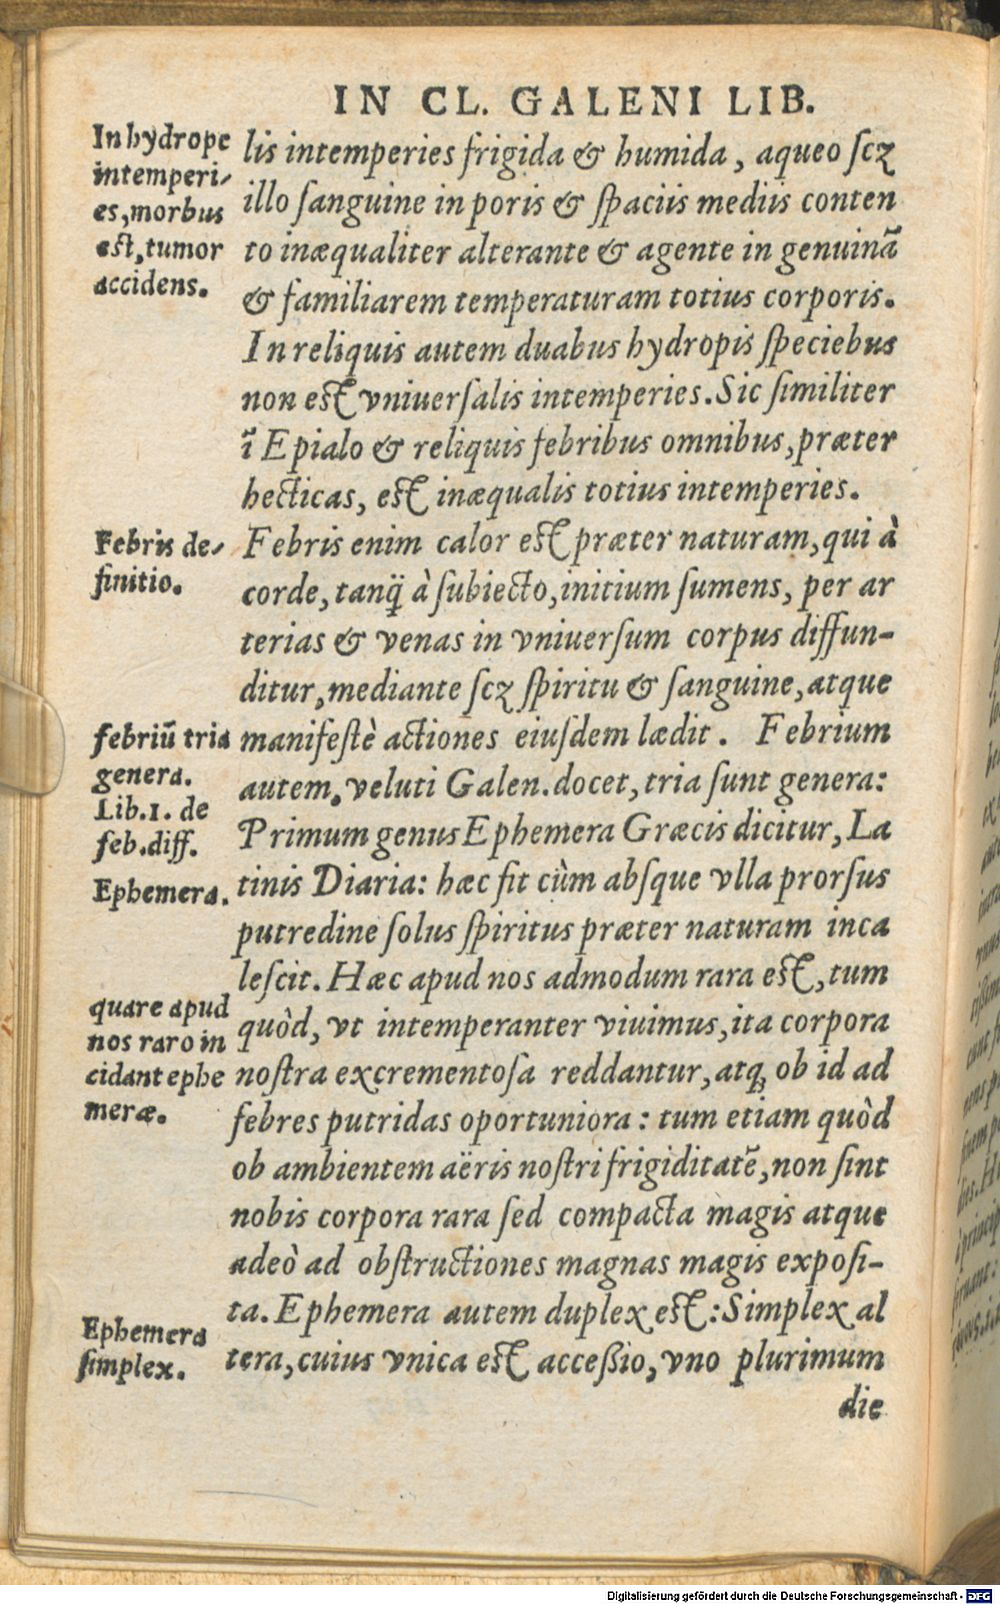 IN CL. GALENI LIB.
In hydrope
intemperi-
es, morbus
est, tumor
accidens.
lis intemperies frigida & humida, aqueo scꝫ
illo sanguine in poris & spaciis mediis conten
to inæqualiter alterante & agente in genuinã
& familiarem temperaturam totius corporis.
In reliquis autem duabus hydropis speciebus
non est vniuersalis intemperies. Sic similiter
ĩ Epialo & reliquis febribus omnibus, præter
hecticas, est inæqualis totius intemperies.
Febris de-
finitio.
Febris enim calor est præter naturam, qui à
corde, tanq̃ à subiecto, initium sumens, per ar
terias & venas in vniuersum corpus diffun-
ditur, mediante scꝫ spiritu & sanguine, atque
febriũ tria
genera.
Lib.1. de
feb.diff.
manifestè actiones eiusdem lædit. Febrium
autem, veluti Galen. docet, tria sunt genera:
Primum genus Ephemera Græcis dicitur, La
Ephemera.
tinis Diaria: hæc fit cùm absque vlla prorsus
putredine solus spiritus præter naturam inca
lescit. Hæc apud nos admodum rara est, tum
quare apud
nos raro in
cidant ephe
meræ.
quòd, vt intemperanter viuimus, ita corpora
nostra excrementosa reddantur, atqꝫ ob id ad
febres putridas oportuniora: tum etiam quòd
ob ambientem aëris nostri frigiditatẽ, non sint
nobis corpora rara sed compacta magis atque
adeò ad obstructiones magnas magis exposi-
ta. Ephemera autem duplex est: Simplex al
Ephemera
simplex.
tera, cuius vnica est accessio, vno plurimum
die
Digitalisierung gefördert durch die Deutsche Forschungsgemeinschaft - DFG